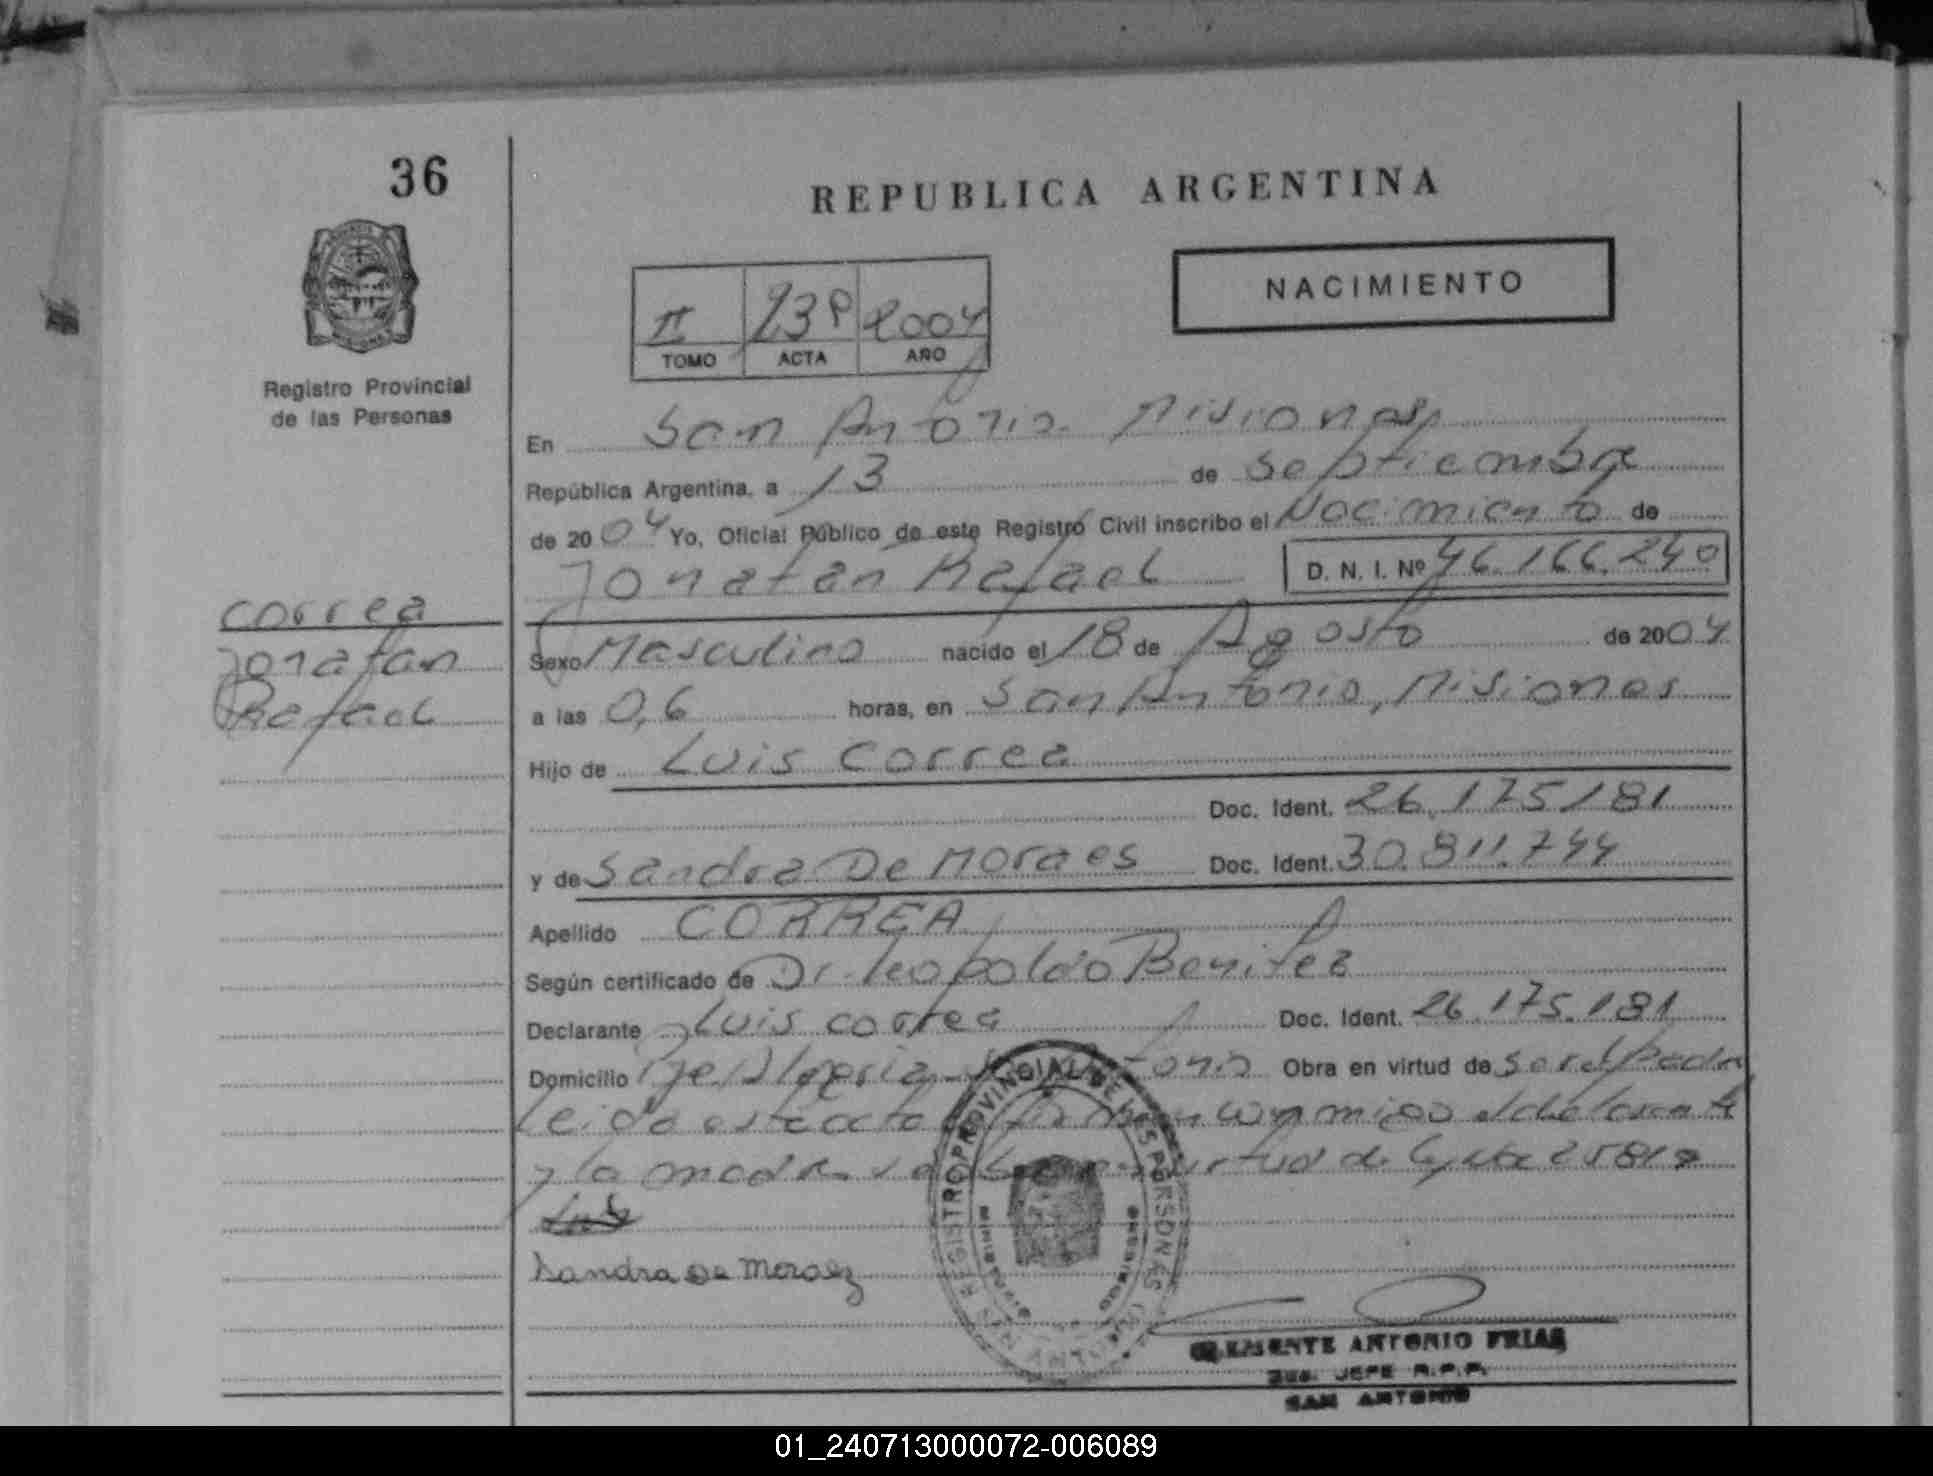 36
REPUBLICA ARGENTINA
NACIMIENTO
II 23 2004
TOMO ACTA AÑO
Registro Provincial
de las Personas
En San Antonio Misiones
República Argentina, a 13 de Septiembre
de 2004 Yo, Oficial Público de este Registro Civil inscribo el Nacimiento de
Jonatan Rafael D. N. I. Nº 46.166.240
Correa
Jonatan
Rafael
Sexo Masculino nacido el 18 de Agosto de 2004
a las 0,6 horas, en San Antonio, Misiones
Hijo de Luis Correa
Doc. Ident. 26.175.181
y de Sandra De Moraes Doc. Ident. 30.811.744
Apellido CORREA
Según certificado de Dr. Leopoldo Benitez
Declarante Luis Correa Doc. Ident. 26.175.181
Domicilio Obra en virtud de ser el Padre
Leida esta acta conmigo el declarante
y la madre virtud de 25819
Sandra De Moraez
REGISTRO PROVINCIAL DE LAS PERSONAS
MISIONES
CLEMENTE ANTONIO FRIAS
JEFE R.P.P.
SAN ANTONIO
01_240713000072-006089